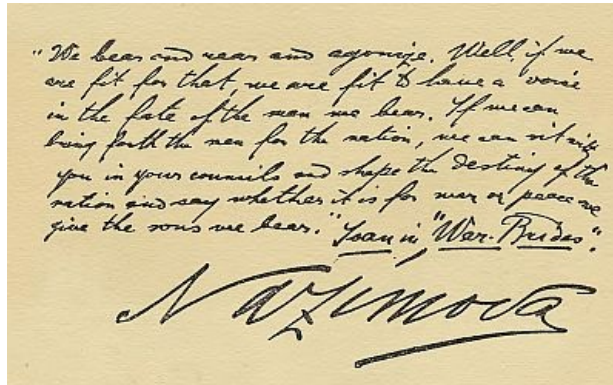 "We bear and rear and agonize. Well, if we
are fit for that, we are fit to have a voice
in the fate of the men we bear. If we can
bring forth the men for the nation, we can sit with
you in your councils and shape the destiny of the
nation and say whether it is for war or peace we
give the sons we bear." Joan in, "War-Brides".
Nazimova